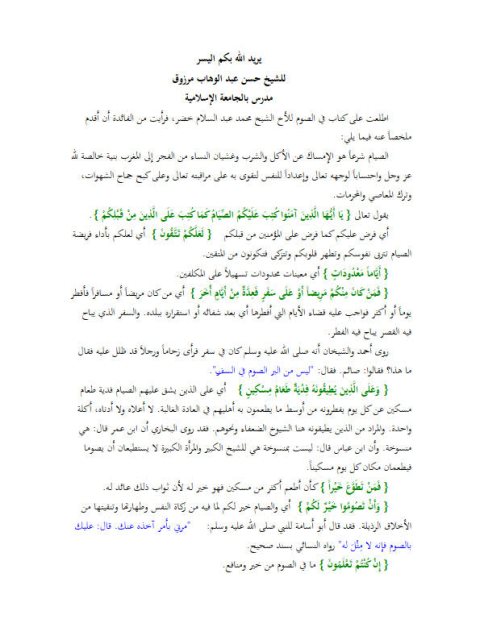 يريد الله بكم اليسر
للشيخ حسن عبد الوهاب مرزوق
مدرس بالجامعة الإسلامية
اطلعت على كتاب في الصوم للأخ الشيخ محمد عبد السلام خضر، فرأيت من الفائدة أن أقدم
ملخصاً عنه فيما يلي:
الصيام شرعاً هو الإمساك عن الأكل والشرب وغشيان النساء من الفجر إلى المغرب بنية خالصة لله
عز وجل واحتساباً لوجهه تعالى وإعداداً للنفس لتقوى به على مراقبته تعالى وعلى كبح جماح الشهوات،
وترك المعاصي والمحرمات.
يقول تعالى { يَا أَيُّهَا الَّذِينَ آمَنُوا كُتِبَ عَلَيْكُمُ الصِّيَامُ كَمَا كُتِبَ عَلَى الَّذِينَ مِنْ قَبْلِكُمْ } .
أي فرض عليكم كما فرض على المؤمنين من قبلكم { لَعَلَّكُمْ تَتَّقُونَ } أي لعلكم بأداء فريضة
الصيام تتربى نفوسكم وتطهر قلوبكم وتتزكى فتكونون من المتقين.
{ أَيَّاماً مَعْدُودَاتٍ } أي معينات محدودات تسهيلاً على المكلفين.
{ فَمَنْ كَانَ مِنْكُمْ مَرِيضاً أَوْ عَلَى سَفَرٍ فَعِدَّةٌ مِنْ أَيَّامٍ أُخَرَ } أي من كان مريضاً أو مسافراً فأفطر
يوماً أو أكثر فواجب عليه قضاء الأيام التي أفطرها أي بعد شفائه أو استقراره ببلده. والسفر الذي يباح
فيه القصر يباح فيه الفطر.
روى أحمد والشيخان أنه صلى الله عليه وسلم كان في سفر فرأى زحاماً ورجلاً قد ظلل عليه فقال
ما هذا؟ فقالوا: صائم. فقال: "ليس من البر الصوم في السفر".
{ وَعَلَى الَّذِينَ يُطِيقُونَهُ فِدْيَةٌ طَعَامُ مِسْكِينٍ } أي على الذين يشق عليهم الصيام فدية طعام
مسكين عن كل يوم يفطرونه من أوسط ما يطعمون به أهليهم في العادة الغالبة. لا أعلاه ولا أدناه، أكلة
واحدة. والمراد من الذين يطيقونه هنا الشيوخ الضعفاء ونحوهم. فقد روى البخاري أن ابن عمر قال: هي
منسوخة. وأن ابن عباس قال: ليست بمنسوخة هي للشيخ الكبير والمرأة الكبيرة لا يستطيعان أن يصوما
فيطعمان مكان كل يوم مسكيناً.
{ فَمَنْ تَطَوَّعَ خَيْراً } كأن أطعم أكثر من مسكين فهو خير له لأن ثواب ذلك عائد له.
{ وَأَنْ تَصُومُوا خَيْرٌ لَكُمْ } أي والصيام خير لكم لما فيه من زكاة النفس وطهارتها وتنقيتها من
الأخلاق الرذيلة. فقد قال أبو أسامة للنبي صلى الله عليه وسلم: "مرني بأمر آخذه عنك. قال: عليك
بالصوم فإنه لا مِثْلَ له" رواه النسائي بسند صحيح.
{ إِنْ كُنْتُمْ تَعْلَمُونَ } ما في الصوم من خير ومنافع.